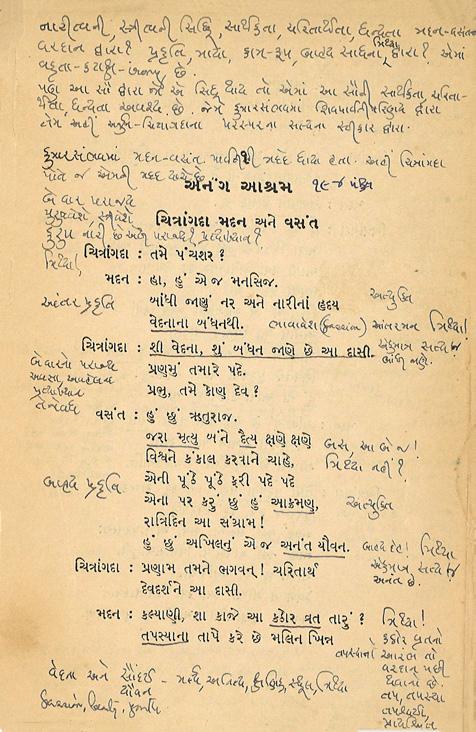 નારીત્વની, સ્ત્રીત્વની સિદ્ધિ, સાર્થકતા, ચરિતાર્થતા, ધન્યતા મદન-વસંતના
વરદાન દ્વારા? પ્રકૃતિ, માયા, કામ-રૂપ, બાહ્ય સાધના, મિથ્યા દ્વારા?
વક્રતા-કટાક્ષ- છે.
પણ આ સૌ દ્વારા જો એ સિદ્ધ થાય તો એમાં આ સૌની સાર્થકતા, ચરિતા-
ર્થતા, ધન્યતા અવશ્ય છે. જેમ કુમારસંભવમાં શિવપાર્વતી દ્વારા
તેમ અહીં અર્જુન-ચિત્રાંગદાના પરસ્પરના સત્યના સ્વીકાર દ્વારા.
કુમારસંભવમાં મદન-વસંત પાર્વતીની મદદે ધાયા હતા. અહીં ચિત્રાંગદા
પોતે જ એમની મદદ યાચે છે.
અનંગ આશ્રમ
બે વાર પરાજય
પુરુષવેશે, સ્ત્રીવેશે
ચિત્રાંગદા મદન અને વસંત
કુરૂપ નારી છે એથી પરાજય? પ્રત્યાખ્યાન?
ચિત્રાંગદા : તમે પંચશર?
મિથ્યા!
મદન : હા, હું એ જ મનસિજ.
બાંધી જાણું નર અને નારીનાં હૃદય
અત્યુક્તિ
આંતર પ્રકૃતિ
વેદનાના બંધનથી.
ભાવાવેશ (passion) આંતરમન મિથ્યા!
ચિત્રાંગદા : શી વેદના, શું બંધન જાણે છે આ દાસી.
એકમાત્ર સત્ય જ
બાંધી જાણે.
પ્રણમું તમારે પદે.
બે વારનો પરાજય
અવજ્ઞા, અવહેલના
પ્રત્યાખ્યાન
તેનેવધે
પ્રભુ, તમે કોણ દેવ?
વસંત : હું છું ઋતુરાજ.
જરા મૃત્યુ બંને દૈત્ય ક્ષણે ક્ષણે
બસ, આ બે જ!
વિશ્વને કંકાલ કરવાને ચાહે,
મિથ્યા નહીં?
એની પૂંઠે પૂંઠે ફરી પદે પદે
બાહ્ય પ્રકૃતિ
એના પર કરું છું હું આક્રમણ,
અત્યુક્તિ
રાત્રિદિન આ સંગ્રામ!
હું છું અખિલનું એ જ અનંત યૌવન.
બાહ્ય દેહ! મિથ્યા
એકમાત્ર સત્ય જ
અનંત છે.
ચિત્રાંગદા : પ્રણામ તમને ભગવન્! ચરિતાર્થ
દેવદર્શને આ દાસી.
મદન : કલ્યાણી, શા કાજે આ કઠોર વ્રત તારું?
મિથ્યા!
તપસ્યાના તાપે કરે છે મલિન ખિન્ન
કઠોર વ્રતનો
તપસ્યાનો આરંભ તો
વરદાન પછી
થવાનો છે.
તપ, તપસ્યા
તપશ્ચર્યા,
પ્રાયશ્ચિત્ત
વેદના અને સૌંદર્ય - મર્ત્ય, અનિત્ય, ક્ષણિક, સ્થૂલ, મિથ્યા
યૌવન
passion, beauty, youth